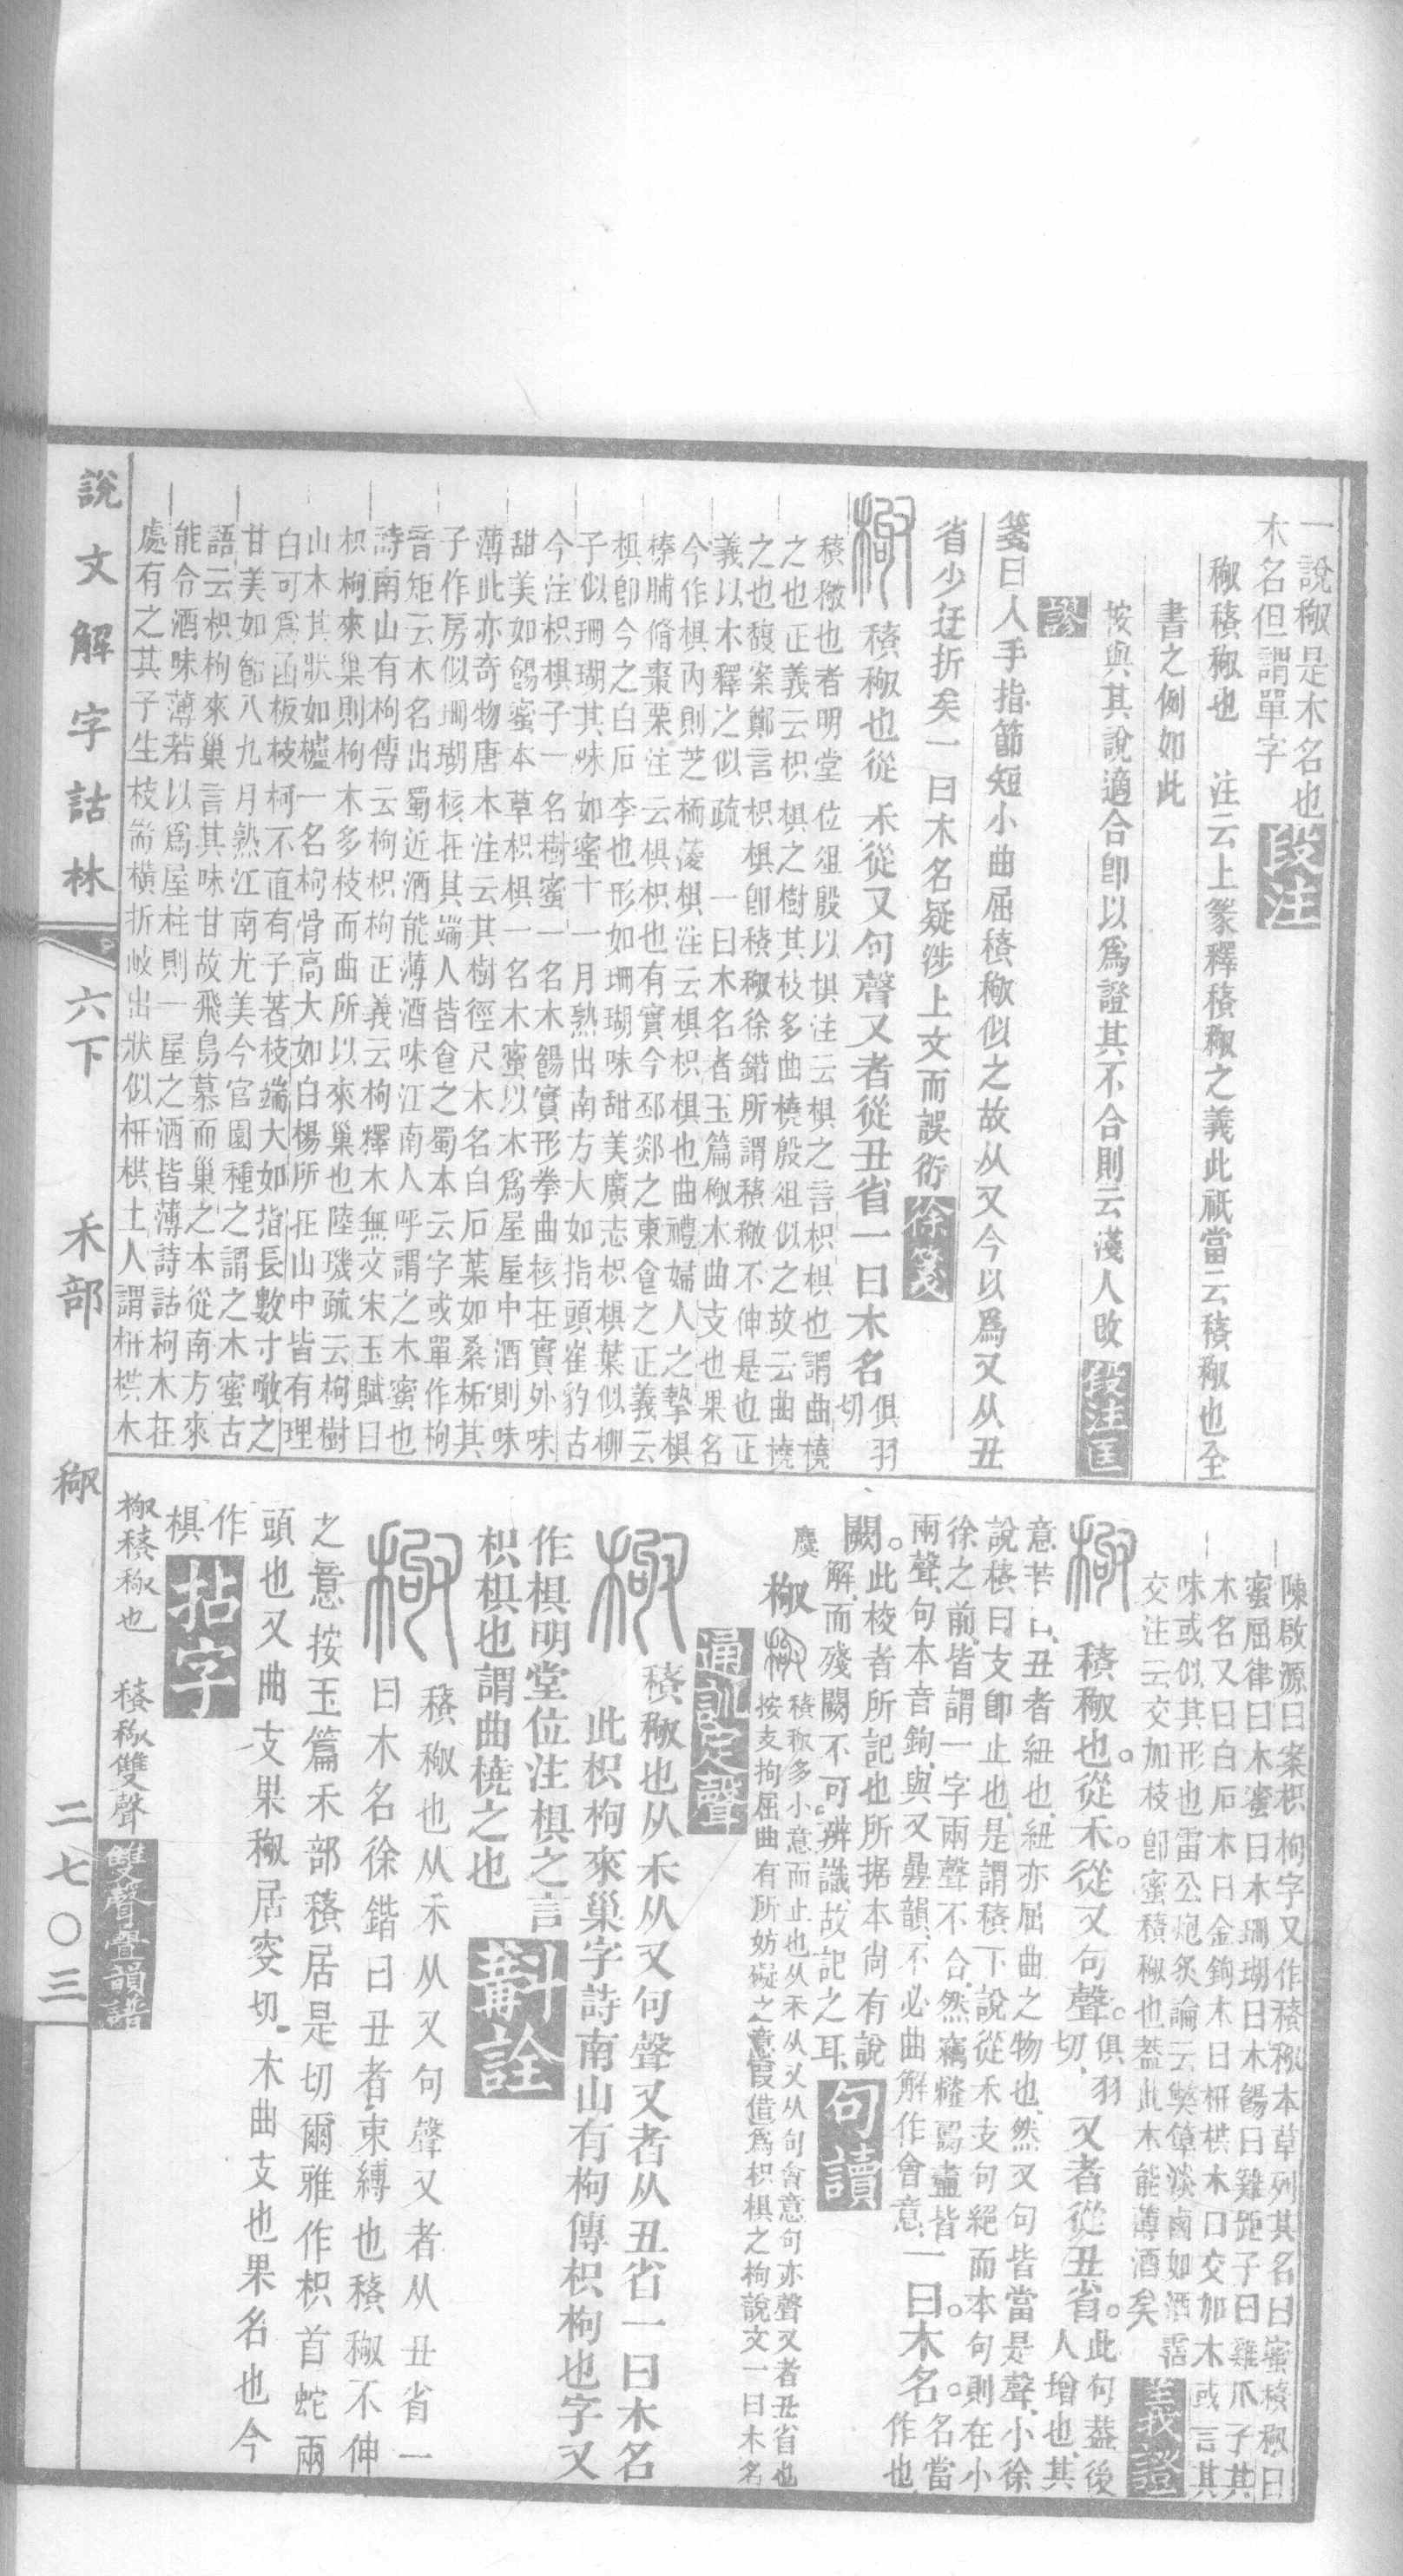 一說𥟖是木名也段注
木名但謂單字
𥟖𥠻𥟖也　注云上篆釋𥠻𥟖之義此祇當云𥠻𥟖也全
書之例如此
按與其說適合卽以爲證其不合則云淺人改段注匡
謬
箋曰人手指節短小曲屈𥠻𥟖似之故从又今以爲又从丑
省少迂折矣一曰木名疑涉上文而誤衍徐箋
𥠻𥟖也從禾從又句聲又者從丑省一曰木名俱羽切
𥠻𥟖也者明堂位俎殷以椇注云椇之言枳椇也謂曲橈
之也正義云枳椇之樹其枝多曲橈殷俎似之故云曲橈
之也馥案鄭言枳椇卽𥠻𥟖徐鍇所謂𥠻𥟖不伸是也正
義以木釋之似疏一曰木名者玉篇𥟖木曲支也果名
今作椇內則芝栭蔆椇注云椇枳椇也曲禮婦人之摯椇
榛脯脩棗栗注云椇枳也有實今邳郯之東食之正義云
椇卽今之白石李也形如珊瑚味甜美廣志枳椇葉似柳
子似珊瑚其味如蜜十一月熟出南方大如指頭崔豹古
今注枳椇子一名樹蜜一名木餳實形拳曲核在實外味
甜美如餳蜜本草枳椇一名木蜜以木爲屋屋中酒則味
薄此亦奇物唐本注云其樹徑尺木名白石葉如桑柘其
子作房似珊瑚核在其端人皆食之蜀本云字或單作枸
音矩云木名出蜀近酒能薄酒味江南人呼謂之木蜜也
詩南山有枸傳云枸枳枸正義云枸釋木無文宋玉賦曰
枳枸來巢則枸木多枝而曲所以來巢也陸璣疏云枸樹
山木其狀如櫨一名枸骨高大如白楊所在山中皆有理
白可爲函板枝柯不直有子著枝端大如指長數寸噉之
甘美如飴八九月熟江南尤美今官園種之謂之木蜜古
語云枳枸來巢言其味甘故飛鳥慕而巢之本從南方來
能令酒味薄若以爲屋柱則一屋之酒皆薄詩詁枸木在
處有之其子生枝耑橫折歧出狀似枅栱土人謂枅栱木
陳啟源曰案枳枸字又作𥠻𥟖本草列其名曰蜜𥠻𥟖曰
蜜屈律曰木蜜曰木珊瑚曰木餳曰雞距子曰雞爪子其
木名又曰白石木曰金鉤木曰枅栱木曰交加木或言其
味或似其形也雷公炮炙論云獘箄淡鹵如酒霑
交注云交加枝卽蜜𥠻𥟖也蓋此木能薄酒矣義證
𥠻𥟖也。從禾。從又句聲。俱羽切、又者從丑省。此句蓋後人增也、其
意若曰、丑者紐也、紐亦屈曲之物也、然又句皆當是聲、小徐
說𥠻曰支卽止也、是謂𥠻下說從禾支句絕而本句則在小
徐之前、皆謂一字兩聲不合、然竊䵻蠹皆
兩聲、句本音鉤、與又疊韻、不必曲解作會意、一曰。木名。名當作也
闕。此校者所記也所据本尚有說解、而殘闕不可辨識、故記之耳、句讀
𥟖𥠻𥟖多小意而止也从禾从又从句會意句亦聲又者丑省也
按支拘屈曲有所妨礙之意叚借爲枳椇之枸說文一曰木名
通訓定聲
𥠻𥟖也从禾从又句聲又者从丑省一曰木名
此枳枸來巢字詩南山有枸傳枳枸也字又
作椇明堂位注椇之言
枳椇也謂曲橈之也斠詮
𥠻𥟖也从禾从又句聲又者从丑省一
曰木名徐鍇曰丑者束縛也𥠻𥟖不伸
之意按玉篇禾部𥠻居是切爾雅作枳首蛇兩
頭也又曲支果𥟖居突切木曲支也果名也今
作
椇拈字
𥟖𥠻𥟖也　𥠻𥟖雙聲雙聲疊韻譜
說文解字詁林　六下　禾部　𥟖　二七〇三